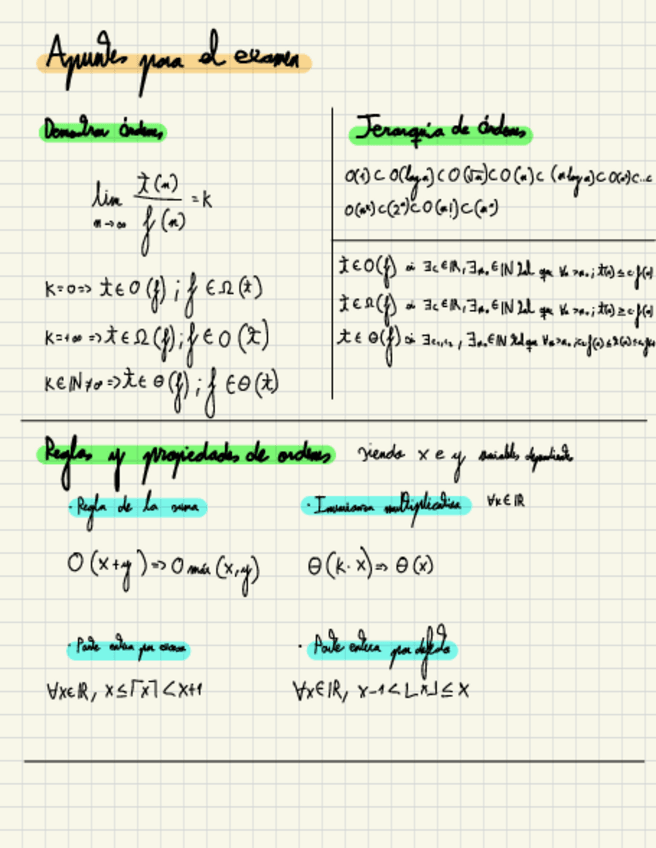 Apuntes para el examen
Demostrar órdenes
lim t(n) / f(n) = k
n→∞
k=0 => t ∈ O(f) ; f ∈ Ω(t)
k=+∞ => t ∈ Ω(f) ; f ∈ O(t)
k ∈ IN ≠ ∞ => t ∈ Θ(f) ; f ∈ Θ(t)
Jerarquía de órdenes
O(1) ⊂ O(log n) ⊂ O(√n) ⊂ O(n) ⊂ (n log n) ⊂ O(n²) ⊂ ... ⊂
O(nᵏ) ⊂ (2ⁿ) ⊂ O(n!) ⊂ (nⁿ)
t ∈ O(f) si ∃c ∈ IR, ∃n₀ ∈ IN tal que ∀n > n₀ ; t(n) ≤ c f(n)
t ∈ Ω(f) si ∃c ∈ IR, ∃n₀ ∈ IN tal que ∀n > n₀ ; t(n) ≥ c f(n)
t ∈ Θ(f) si ∃c₁,c₂ , ∃n₀ ∈ IN tal que ∀n > n₀
Reglas y propiedades de ordenes siendo x e y variables dependientes
· Regla de la suma
O(x+y) => O máx (x,y)
· Invarianza multiplicativa ∀k∈IR
Θ(k·x) => Θ(x)
· Parte entera por exceso
∀x∈IR, x ≤ ⌈x⌉ < x+1
· Parte entera por defecto
∀x∈IR, x-1 < ⌊x⌋ ≤ x